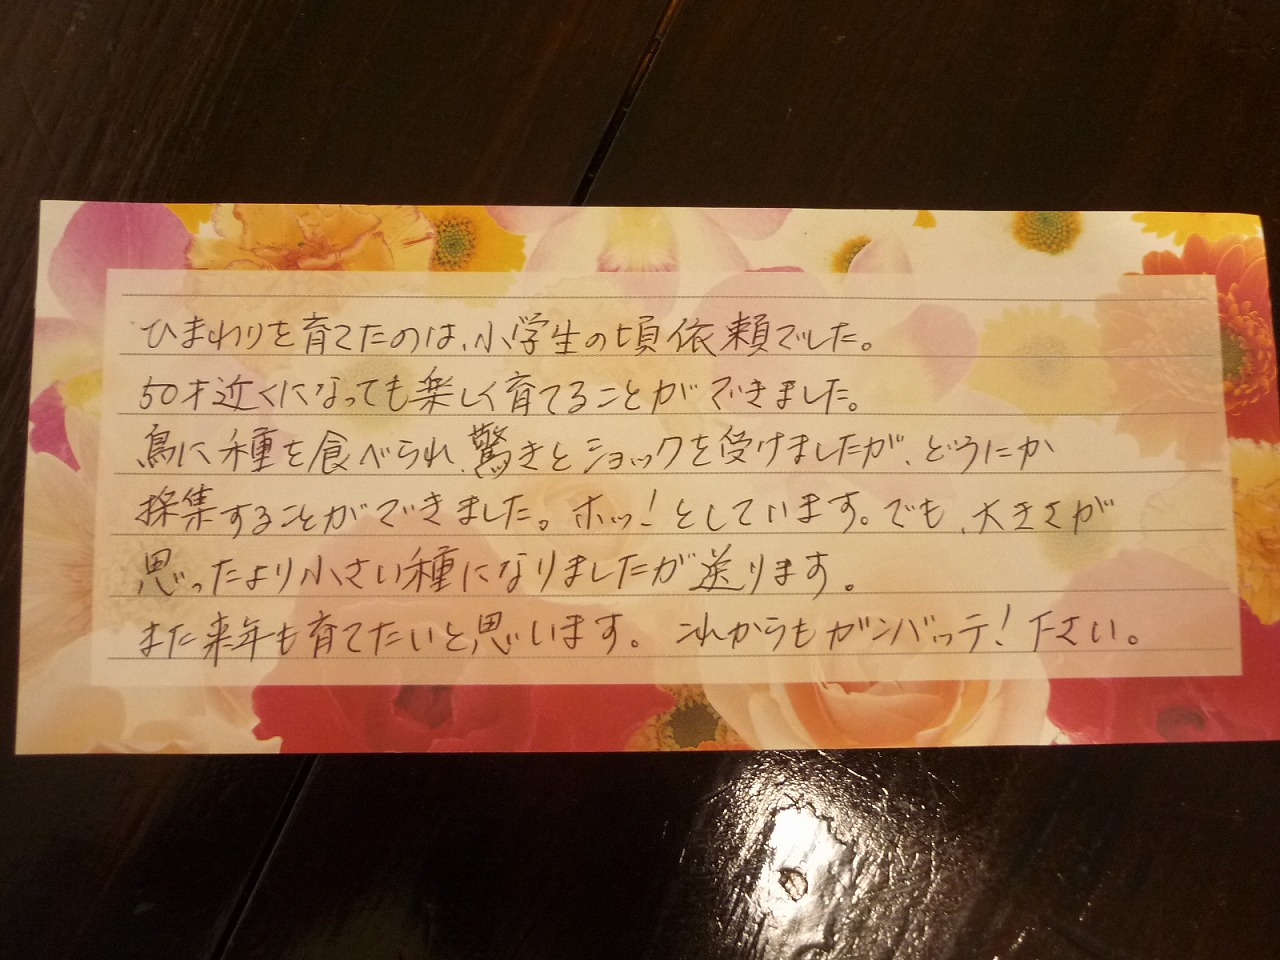 ひまわりを育てたのは、小学生の頃依頼でした。
50才近くになっても楽しく育てることができました。
鳥に種を食べられ、驚きとショックを受けましたが、どうにか
採集することができました。ホッ!としています。でも、大きさが
思ったより小さい種になりましたが送ります。
また来年も育てたいと思います。これからもガンバッテ!下さい。